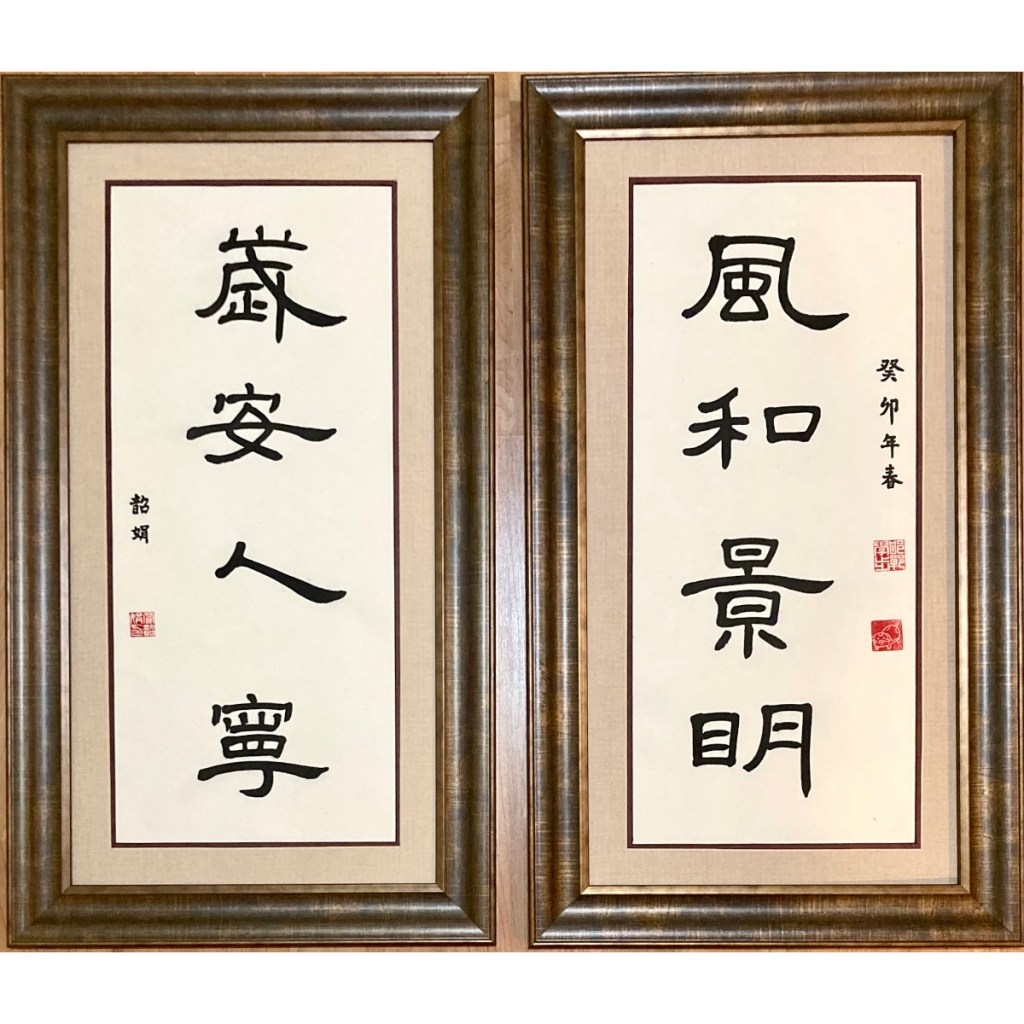 風和景明
癸卯年春
歲安人寧
韶娟